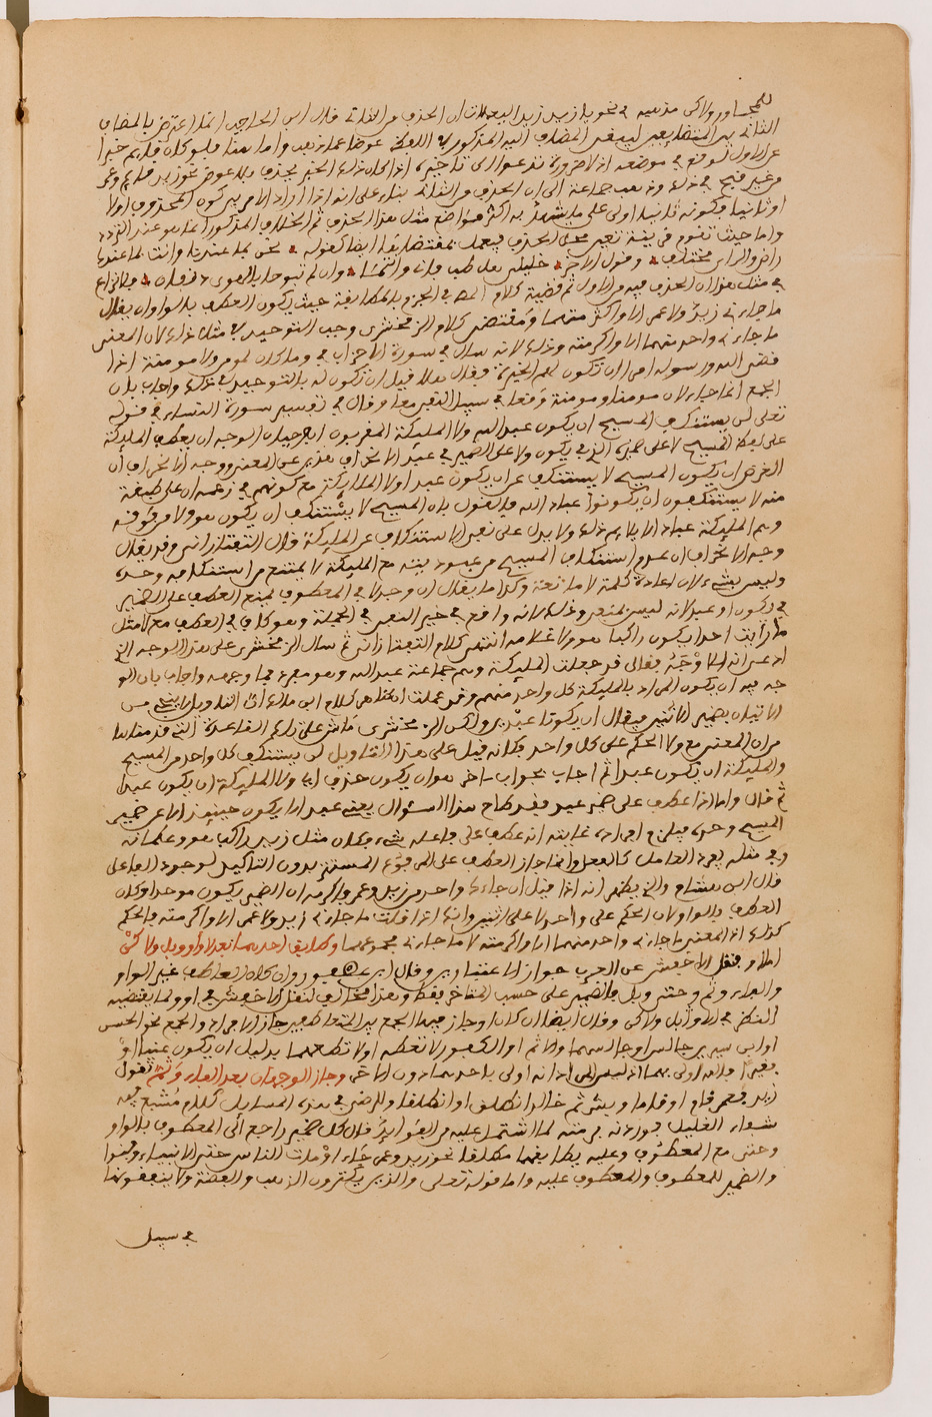 للمجاور ولاكن مذهبه في نحو يا زيد زيد اليعملات ان الحذف من الثاني قال ابن الحاجب انما اعترض بالمضاف
الثاني بين المتضايفين ليبقى المضاف اليه المذكور في اللفظ عوضا عما ذهب واما هنا فلو كان قايم خبرا
عن الاول لوقع في موضعه اذ لا ضرورة تدعوا الى تاخيره اذا كان ذلك الخبر يحذف بلا عوض نحو زيد قايم وعمر
من غير قبح في ذلك وذهب جماعة الى ان الحذف من الثاني بناء على انه اذا دار الامر بين كون المحذوف اولا
او ثانيا فكونه ثانيا اولى على ما يشهد به اكثر مواضع مثل هذا الحذف ثم الخلاف المذكور انما هو عند التردد
واما حيث تقوم قرينة تعين محل الحذف فيعمل بمقتضاها ايضا كقوله نحن بما عندنا وانت بما عندك
راض والراي مختلف وقول الاخر خليلي هل طب فاني وانتما وان لم تبوحا بالهوى دنفان فلا نزاع
في مثله هذا ان الحذف فيه من الاول ثم قضية كلام المص في الجزم بالمطابقة حيث يكون العطف بالواو ان يقال
ما جاءني زيد ولا عمر الا واكرمتهما ومقتضى كلام الزمخشري وجب التوحيد في مثل ذلك لان المعنى
ما جاءني واحد منهما الا واكرمته وذلك لانه سال في سورة الاحزاب في وما كان لمومن ولا مومنة اذا
قضى الله ورسوله امرا ان تكون لهم الخيرة وقال هلا قيل ان تكون له بالتوحيد في ذلك واجاب بان
الجمع انما جاء لان مومنا ومومنة وقعا في سياق النفي معا وقال في تفسير سورة النساء في قوله
تعلى لن يستنكف المسيح ان يكون عبد الله ولا المليكة المقربون اجود حيان الوجه ان يعطف المليكة
على لفظ المسيح لا على ضميره الذي في يكون ولا على الضمير في عبد الانحراف هذين عن المعنى ووجه الانحراف ان
الغرض ان يكون المسيح لا يستنكف عن ان يكون عبد او لا الملايكة مع كونهم في زعمه ان على طبقة
منه لا يستنكفون ان يكونوا عباد الله والقول بان المسيح لا يستنكف ان يكون هو ولا من فوقه
وهم المليكة عبادا لا يلايم ذلك ولا يدل على نفي الاستنكاف عن المليكة قال التفتازاني وقد يقال
وجه الانحراف ان عدم استنكاف المسيح من عبوديته مع المليكة لا يمتنع من استنكافه وحده
وليس بشيء لان اعادة كلمة لا مانعة وكذا ما يقال ان وجود لا في المعطوف يمنع العطف على الضمير
في يكون او عبد لانه ليس بمنفي وذلك لانه واقع في خبر النفي في الجملة وهو كاف في العطف مع لا مثل
ما رايت احدا يكون راكبا هو ولا غلامه انتهى كلام التفتازاني ثم سال الزمخشري على هذا الوجه الذي
ادعى انه الاوجه فقال قد جعلت المليكة وهم جماعة عبد الله وهو مفرد فما وجهه واجاب بان الو
جه فيه ان يكون المراد بالمليكة كل واحد منهم وقد علمت ان ظاهر كلام ابن مالك ان التاويل لا ينجي من
الاتيان بضمير الاثنين فيقال ان يكونا عبدين ولكن الزمخشري ماش على تلك القاعدة التي قدمناها
من ان المعنى مع ولا الحكم على كل واحد فكانه قيل على هذا التاويل لن يستنكف كل واحد من المسيح
والمليكة ان يكون عبدا ثم اجاب بجواب ساخر هو ان يكون حذف اي ولا المليكة ان يكون عبدا
ثم قال واما اذا عطف على ضمير عبد فقد طاح هذا السئوال يعني عبد انما يكون حينئذ اما عن ضمير
المسيح وحده فيلزم افراده غايته انه عطف على فاعله شيء فكان مثل زيد راكب هو وغلمانه
وفي مثله يفرد العامل كالفعل وانما جاز العطف على المرفوع المستتر بدون التاكيد لوجود الفاعل
قال ابن هشام والذي يظهر انه اذا قيل ان جاءك واحد من زيد وعمر فاكرمه ان الضمير يكون موحدا وكان
العطف بالواو لان الحكم على واحد لا على اثنين وانك اذا قلت ما جاءني زيد ولا عمر الا واكرمته فالحكم
كذلك اذ المعنى ما جاءني واحد منهما الا واكرمته لا ما جاءني مجموعهما وطابق احدهما بعد لا واو وبل ولا كن
اما او فنقل الاخفش عن العرب جواز الاعتبارين وقال ابن عصفور وان كان العاطف غير الواو
والفاء وثم وحتى وبل فالضمير على حسب المتاخر فقط وهذا مخالف لنقل الاخفش في او ولما يقتضيه
النظر في لا وبل ولا كن وقال ايضا ان كان او جاز فيها الجمع بين المتعاطفين جاز الافراد والجمع نحو الحسن
او ابن سيرين جالس او جالسهما والاثم او الكفور لا تطعه او لا تطعهما بدليل ان يكون غنيا او
فقيرا فالله اولى بهما اذ ليس المراد انه اولى باحدهما دون الاخر وجاز الوجهان بعد الفاء وثم تقول
زيد فعمر قام او قاما وبشر ثم خالد انطلق او انطلقا وللرضى في هذه المسايل كلام مشبع فيه
شفاء الغليل فوردنه برمته لما اشتمل عليه من الفوايد قال كل ضمير راجع الى المعطوف بالواو
وحتى مع المعطوف عليه يطابقهما مطلقا نحو زيد وعمر جاءا ومات الناس حتى الانبياء وفنوا
والضمير للمعطوف والمعطوف عليه واما قوله تعلى والذين يكنزون الذهب والفضة ولا ينفقونها
في سبيل